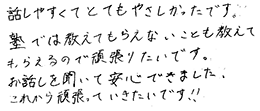 話しやすくてとてもやさしかったです。
塾では教えてもらえないことも教えて
もらえるので頑張りたいです。
お話しを聞いて安心できました。
これから頑張っていきたいです!!